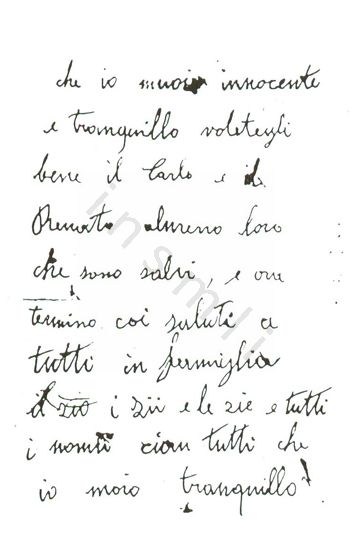 che io muoio innocente
e tranquillo voletegli
bene il Carlo e il
Renato almeno loro
che sono salvi, e ora
termino coi saluti a
tutti in famiglia
il zio i zii e le zie e tutti
i nonni ciau tutti che
io moio tranquillo!
insmli